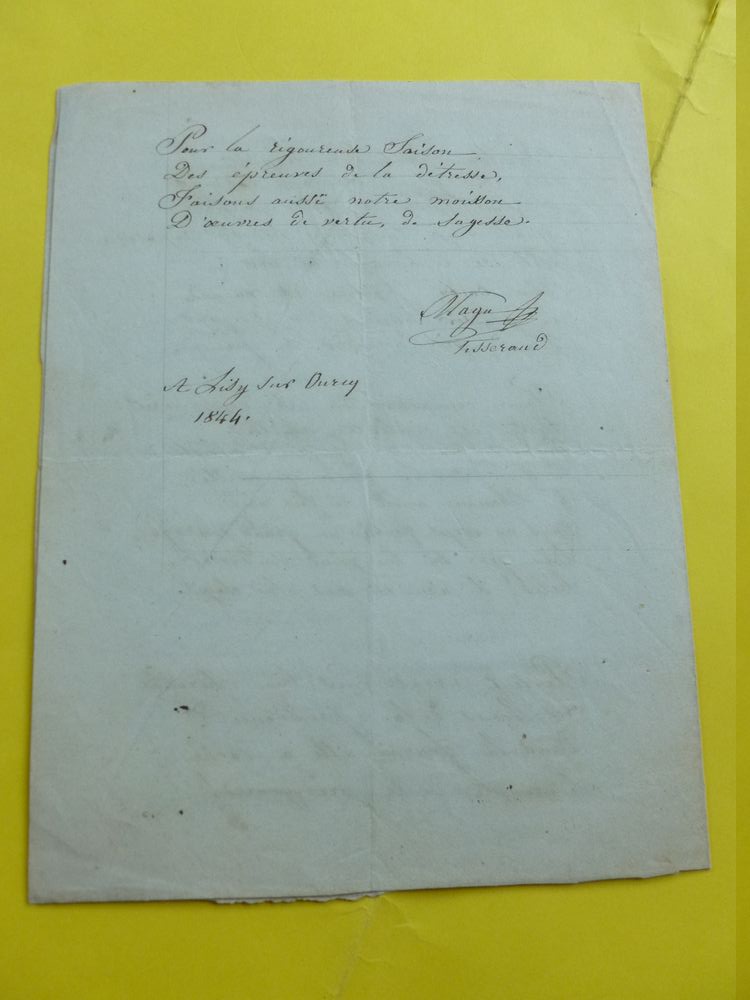 Pour la rigoureuse Saison
Des épreuves de la détresse,
Faisons aussi notre moisson
D'œuvres de vertu, de Sagesse.
Magu
tisserand
A Lisy sur Ourcq
1844.